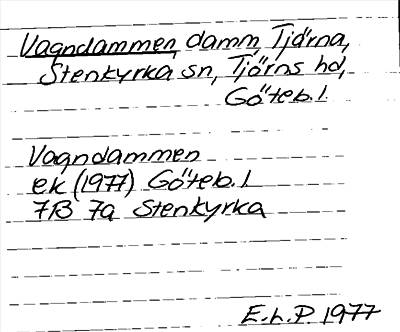 Vagndammen, damm, Tjärna,
Stenkyrka sn, Tjörns hd,
Göteb. l.
Vagndammen
ek (1977) Göteb. l
7B 7a Stenkyrka
E.L.P. 1977